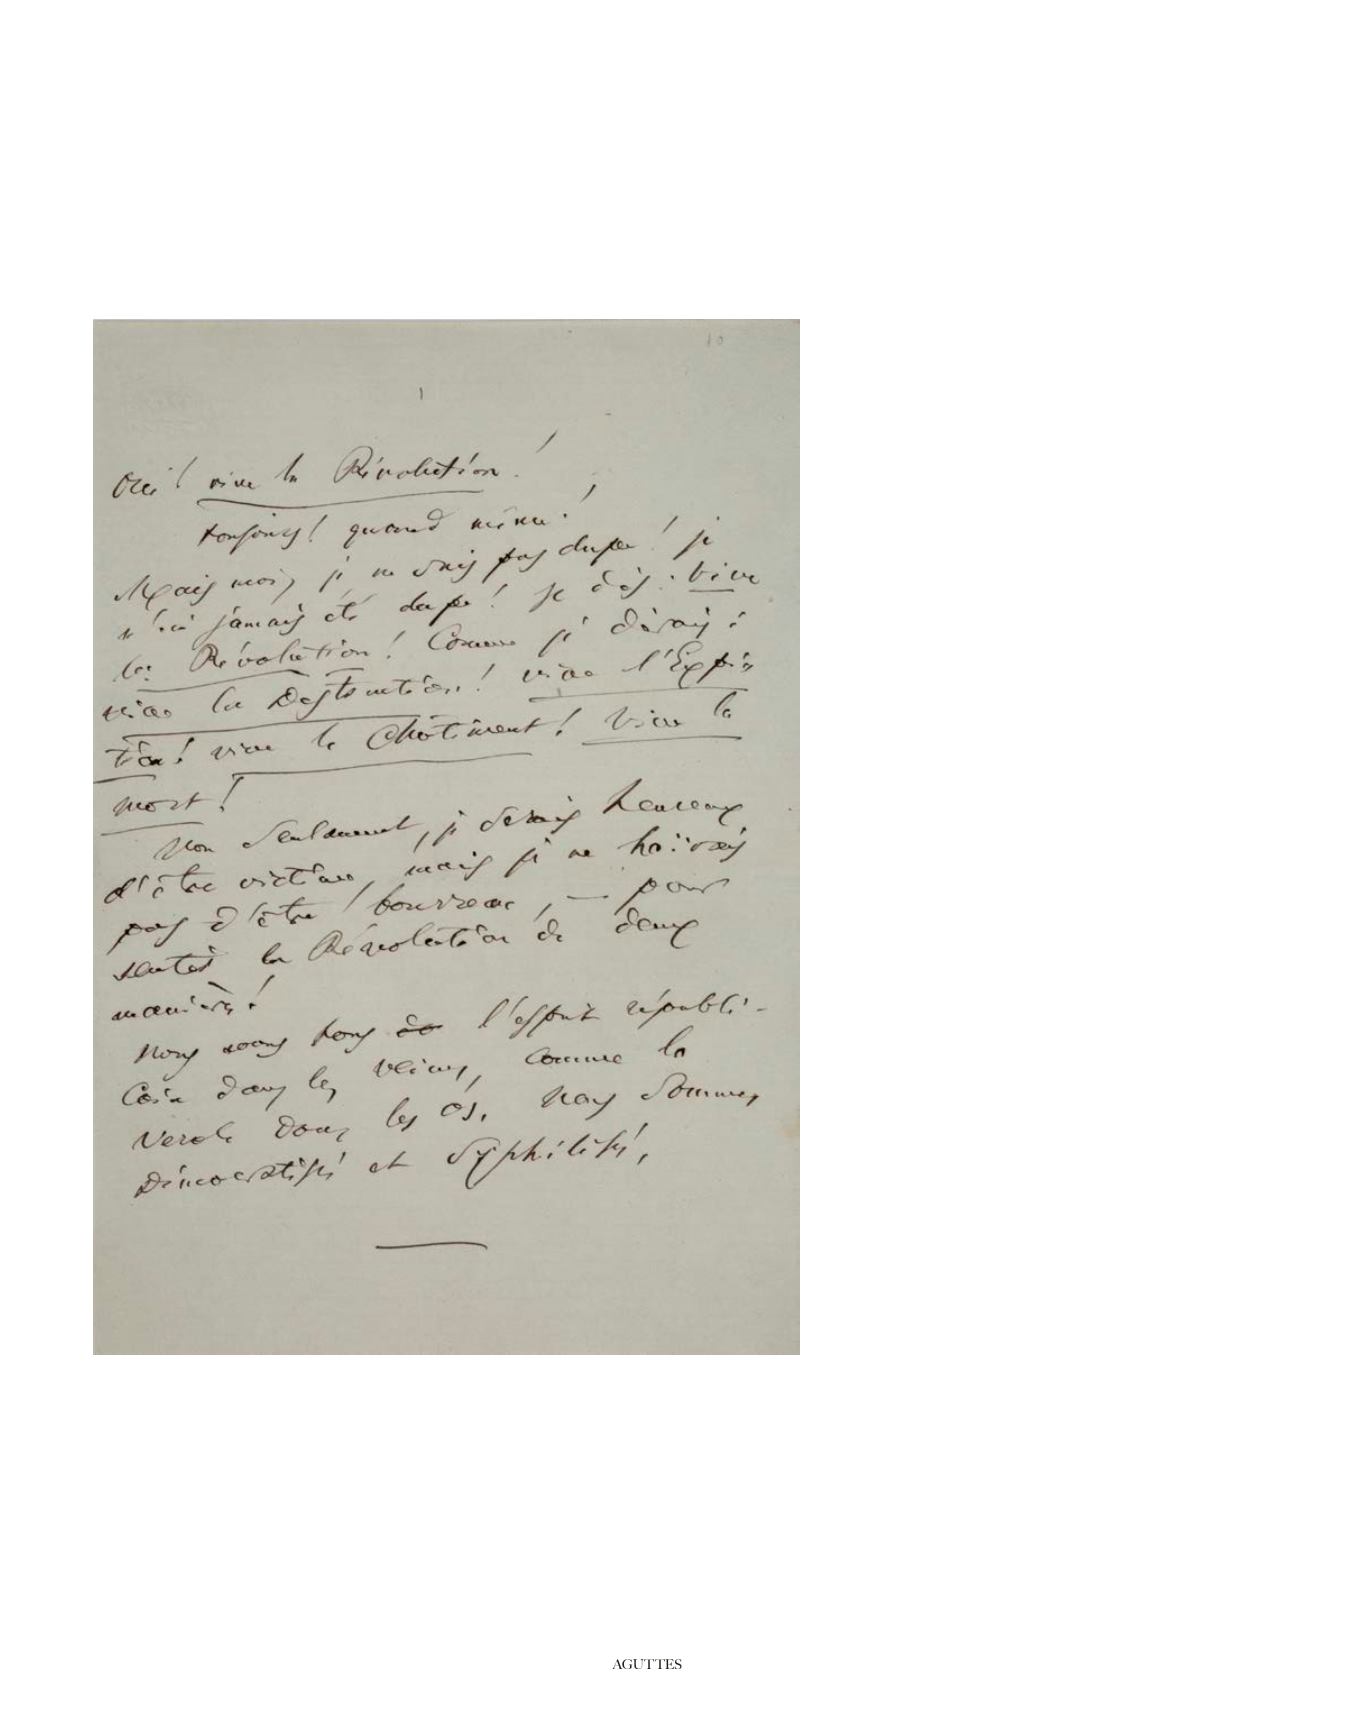 10
Oui! vive la Révolution!
toujours! quand même!
Mais moi, je ne suis pas dupe! je
n'ai jamais été dupe! Je dis: Vive
la Révolution! Comme je dirais:
vive la Destruction! vive l'Expia
tion! vive le Châtiment! Vive la
mort!
Non seulement, je serais heureux
d'être victime, mais je ne haïrais
pas d'être bourreau, — pour
sentir la Révolution de deux
manières!
Nous avons tous l'esprit républi-
cain dans les veines, comme la
vérole dans les os. Nous sommes
Démocratisés et Syphilisés,
AGUTTES